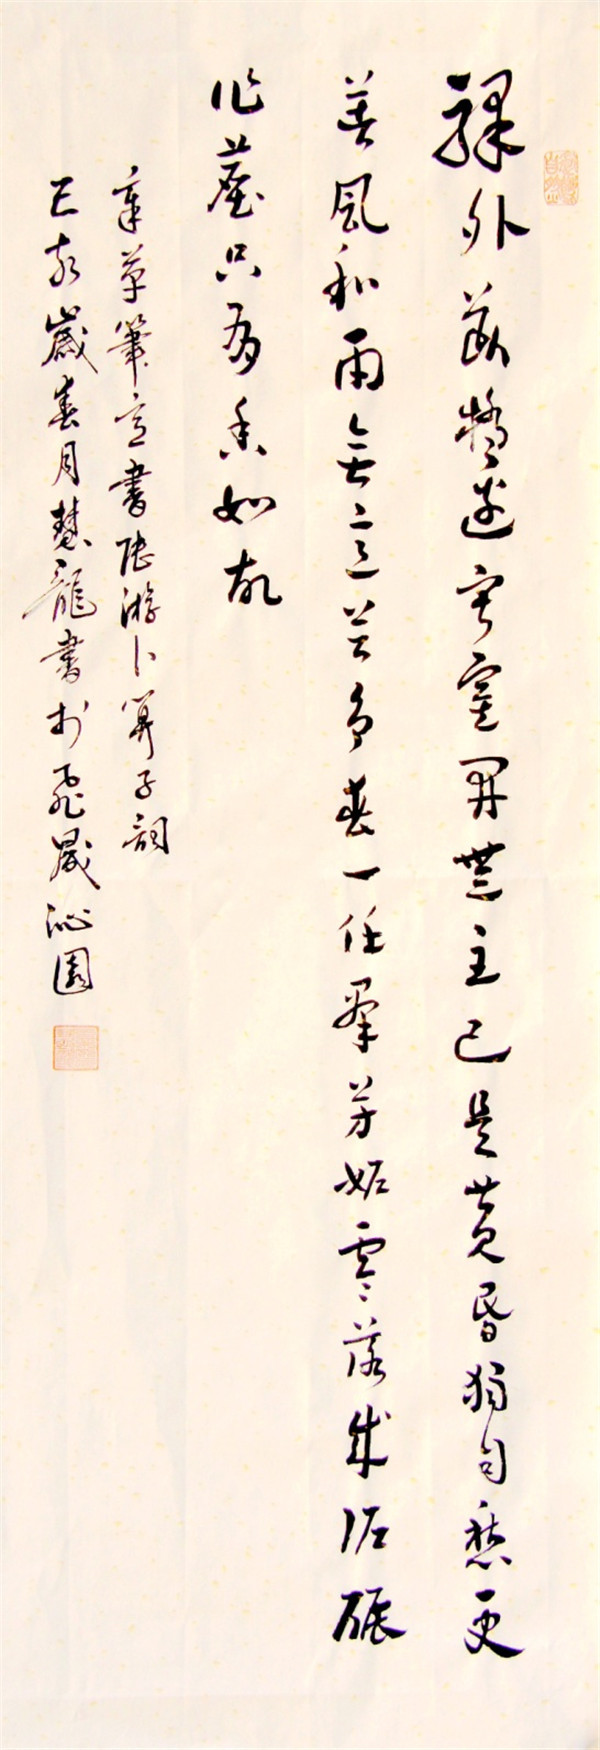 驛外斷橋邊寂寞開無主已是黃昏獨自愁更
著風和雨無意苦爭春一任羣芳妬零落成泥碾
作塵只有香如故
章草筆意書陸游卜算子詞
己亥歲春月慧龍書於飛晟沁園